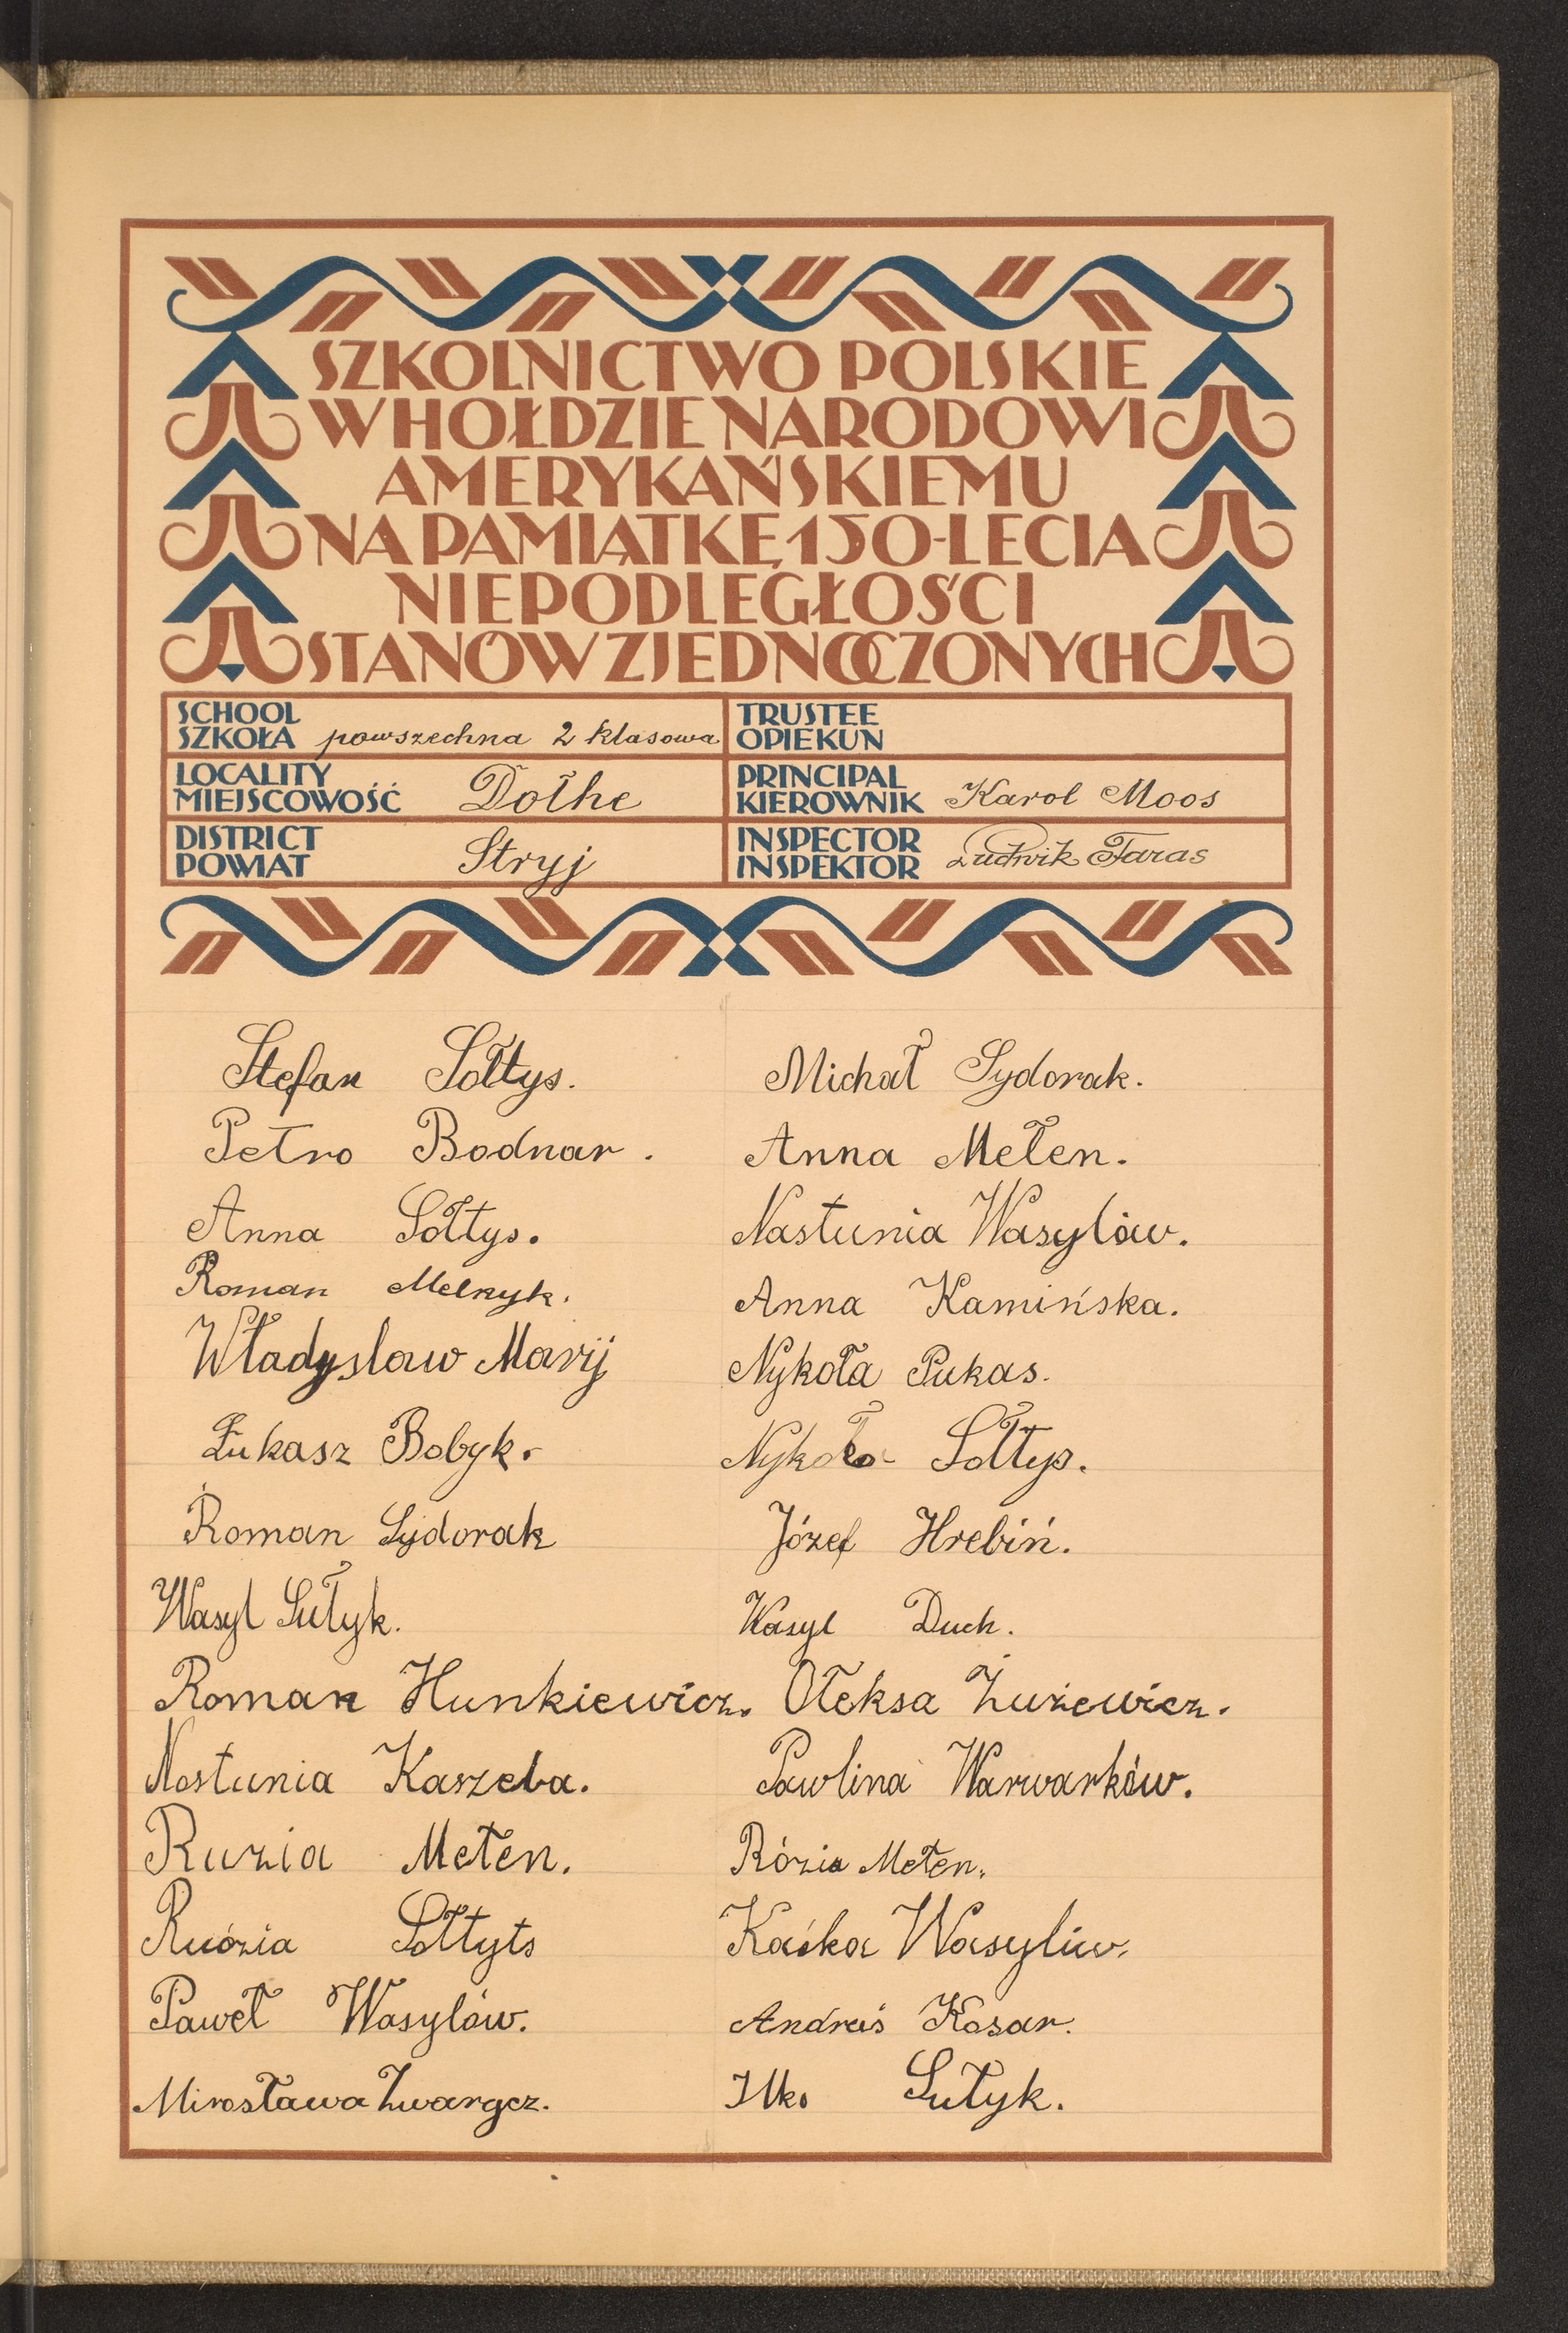 SZKOLNICTWO POLSKIE
W HOŁDZIE NARODOWI
AMERYKAŃSKIEMU
NA PAMIĄTKĘ 150-LECIA
NIEPODLEGŁOŚCI
STANÓW ZJEDNOCZONYCH
SCHOOL
SZKOŁA powszechna 2 klasowa
TRUSTEE
OPIEKUN
LOCALITY
MIEJSCOWOŚĆ Dołhe
PRINCIPAL
KIEROWNIK Karol Moos
DISTRICT
POWIAT Stryj
INSPECTOR
INSPEKTOR Ludwik Taras
Stefan Sołtys.
Petro Bodnar.
Anna Sołtys.
Roman Melnyk.
Władysław Maryj
Łukasz Bobyk.
Roman Sydorak
Wasyl Sułyk.
Roman Hunkiewicz.
Nastunia Kaszeba.
Ruzia Meten.
Ruózia Sołtyts
Paweł Wasylów.
Mirosława Zwargcz.
Michał Sydorak.
Anna Mełen.
Nastunia Wasylów.
Anna Kamińska.
Nykoła Pukas.
Nykoła Sołtys.
Józef Hrebiń.
Wasyl Duch.
Ołeksa Żużewicz.
Pawlina Warwarków.
Rózia Meten.
Kaśka Wasyliw.
Andruś Kosar.
Ilko Sułyk.